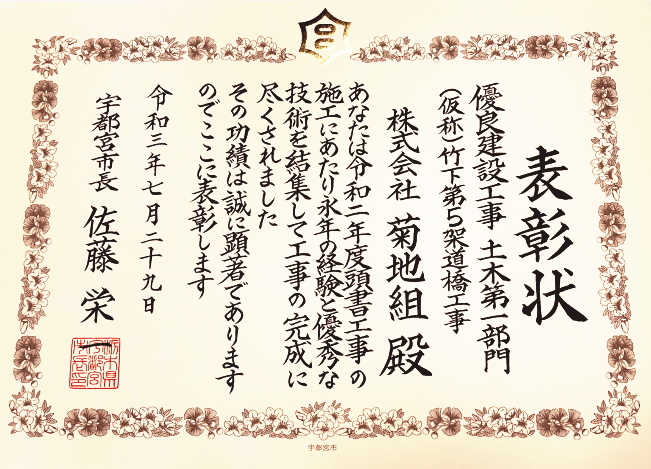 表彰状
優良建設工事 土木第一部門
(仮称)竹下第5架道橋工事
株式会社 菊地組 殿
あなたは令和二年度頭書工事の
施工にあたり永年の経験と優秀な
技術を結集して工事の完成に
尽くされました
その功績は誠に顕著であります
のでここに表彰します
令和三年七月二十九日
宇都宮市長 佐藤 栄一
宇都宮市